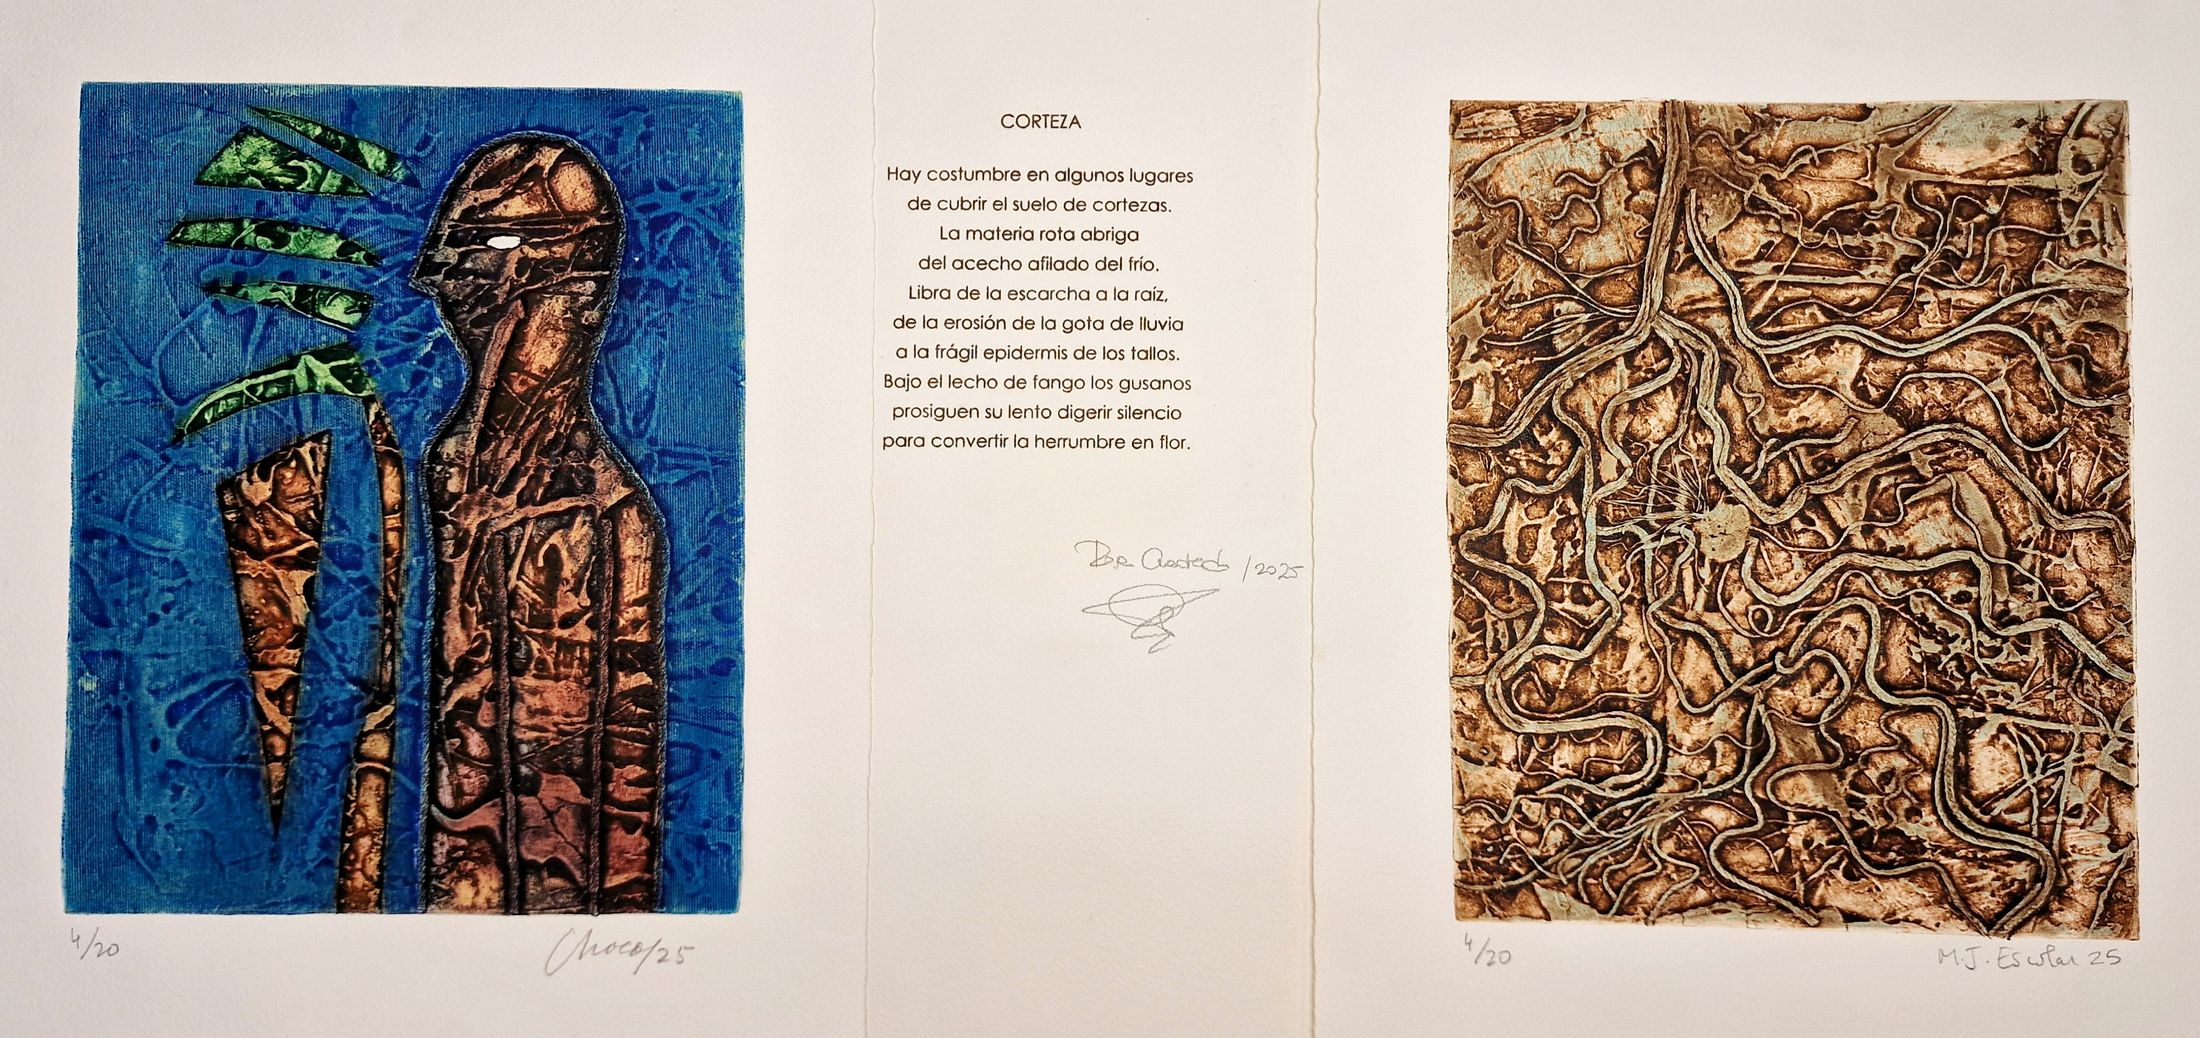 CORTEZA
Hay costumbre en algunos lugares
de cubrir el suelo de cortezas.
La materia rota abriga
del acecho afilado del frío.
Libra de la escarcha a la raíz,
de la erosión de la gota de lluvia
a la frágil epidermis de los tallos.
Bajo el lecho de fango los gusanos
prosiguen su lento digerir silencio
para convertir la herrumbre en flor.
/2025
4/20
Choco/25
4/20
M.J. Escolar 25